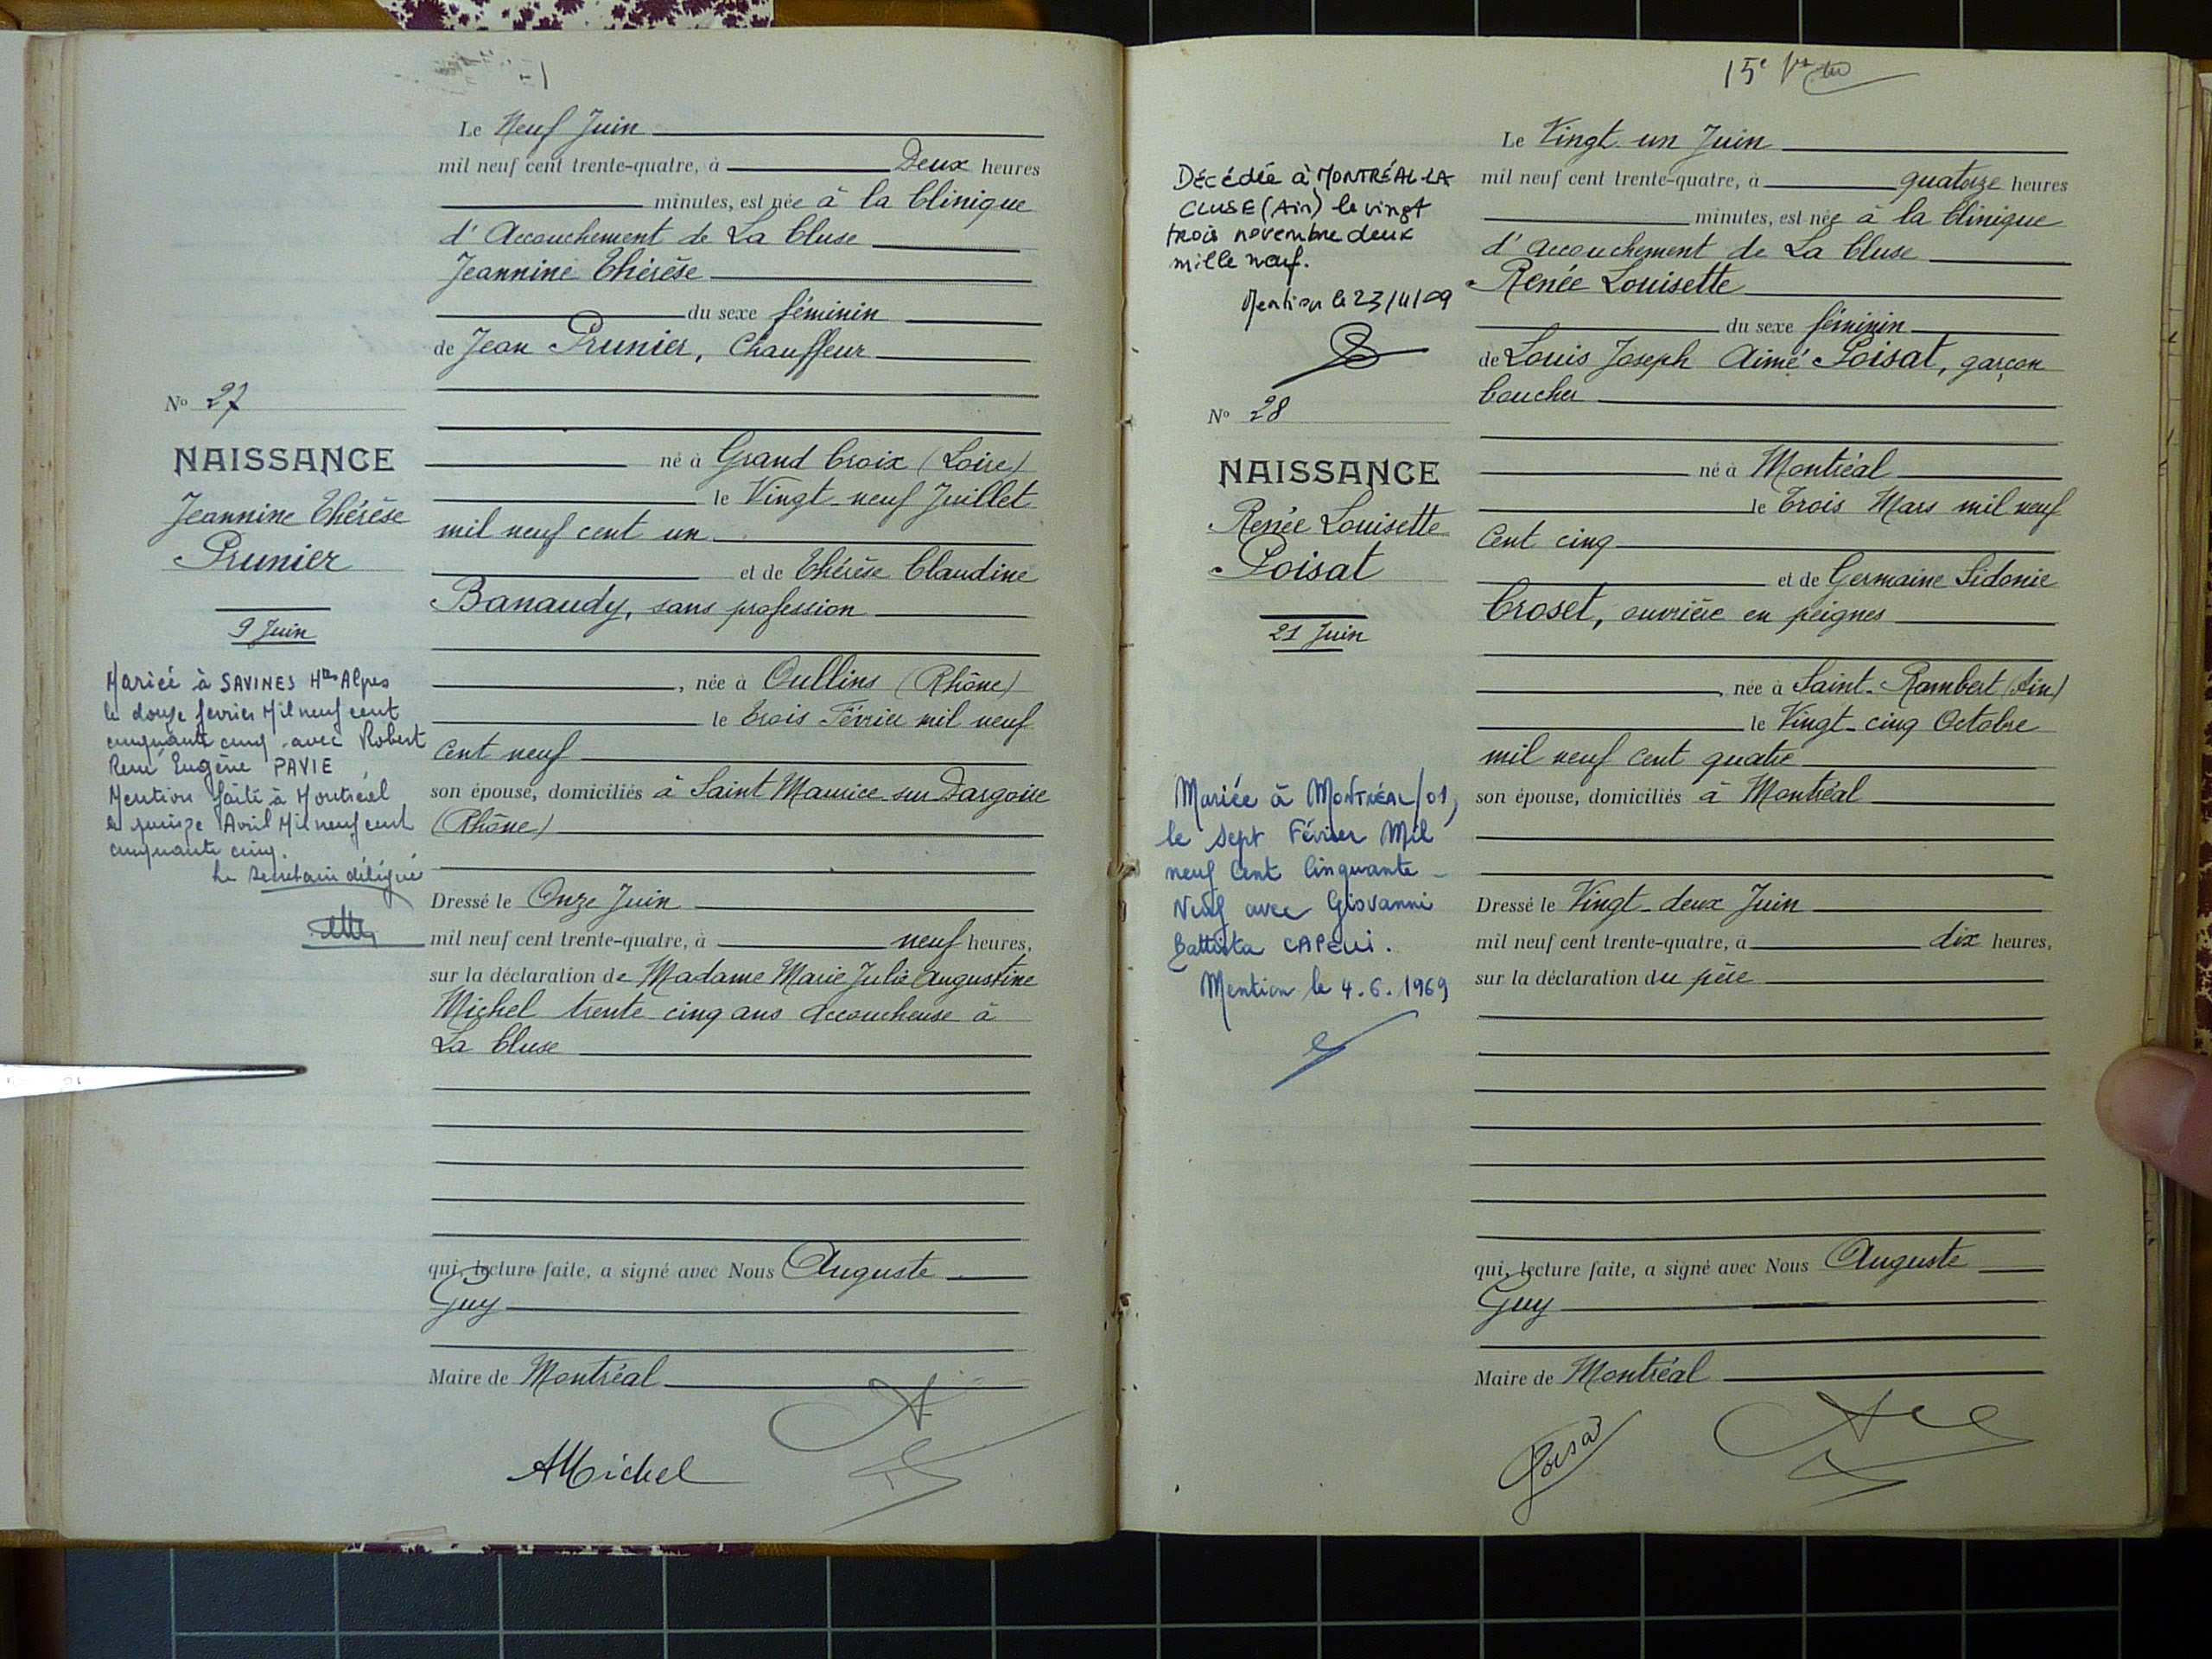 Le Neuf Juin
mil neuf cent trente-quatre, à Deux heures
minutes, est née à la Clinique
d'Accouchement de La Cluse
Jeannine Thérèse
du sexe féminin
de Jean Prunier, Chauffeur
né à Grand Croix (Loire)
le Vingt-neuf Juillet
mil neuf cent un
et de Thérèse Claudine
Banaudy, sans profession
, née à Oullins (Rhône)
le trois Février mil neuf
cent neuf
son épouse, domiciliés à Saint Maurice sur Dargoire
(Rhône)
Dressé le Onze Juin
mil neuf cent trente-quatre, à neuf heures,
sur la déclaration de Madame Marie Julie Augustine
Michel trente cinq ans accoucheuse à
La Cluse
qui, lecture faite, a signé avec Nous Auguste
Guy
Maire de Montréal
AMichel
No 27
NAISSANCE
Jeannine Thérèse
Prunier
9 Juin
Mariée à SAVINES Htes Alpes
le douze février Mil neuf cent
cinquante cinq avec Robert
René Eugène PAVIE
Mention faite à Montréal
le quinze Avril Mil neuf cent
cinquante cinq.
Le Secrétaire délégué
15e
Le Vingt-un Juin
mil neuf cent trente-quatre, à quatorze heures
minutes, est née à la Clinique
d'accouchement de La Cluse
Renée Louisette
du sexe féminin
de Louis Joseph Aimé Poisat, garçon
boucher
né à Montréal
le trois Mars mil neuf
cent cinq
et de Germaine Sidonie
Croset, ouvrière en peignes
, née à Saint-Rambert (Ain)
le Vingt-cinq Octobre
mil neuf cent quatre
son épouse, domiciliés à Montréal
Dressé le Vingt-deux Juin
mil neuf cent trente-quatre, à dix heures,
sur la déclaration du père
qui, lecture faite, a signé avec Nous Auguste
Guy
Maire de Montréal
Poisat
Décédée à MONTRÉAL-LA
CLUSE (Ain) le vingt
trois novembre deux
mille neuf.
Mention le 23/11/09
No 28
NAISSANCE
Renée Louisette
Poisat
21 Juin
Mariée à MONTRÉAL/01,
le sept Février Mil
neuf Cent Cinquante-
Neuf avec Giovanni
Battista CAPELLI.
Mention le 4.6.1969